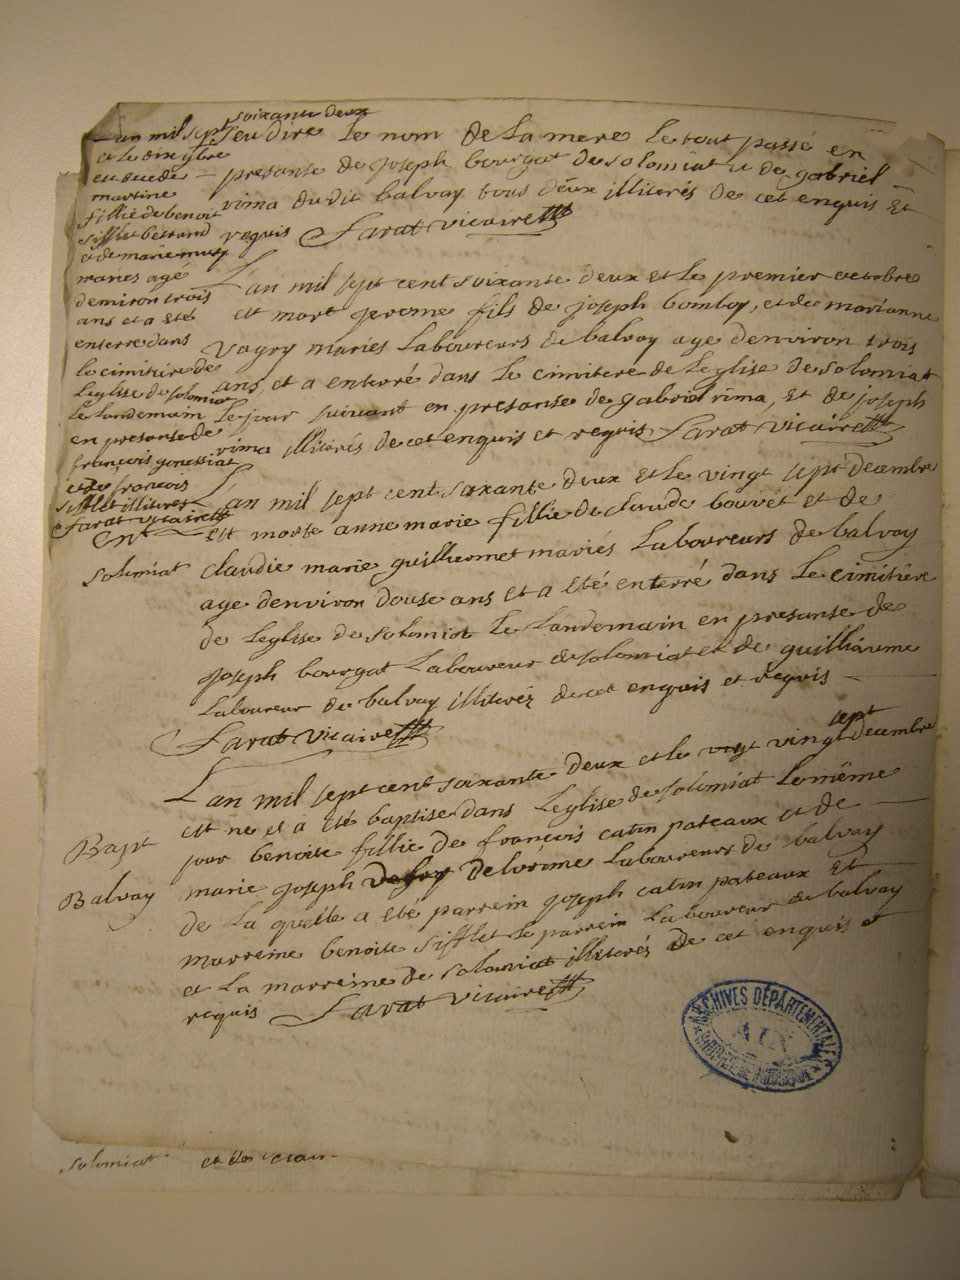 soixante deux
Lan mil sept
et le dix 9bre
est decedé
martine
fillie de benoit
sifflet bertrand
et de marie
maries agé
demiron trois
ans et a eté
enterré dans
le cimitiere de
leglise de solomiat
le landemain
en presanse de
françois
et de françois
sifflet illiteres
farat vicaire
sceu dire le nom de la mere le tout passé en
presanse de joseph bourgat de solomiat et de gabriel
vima du dit balvay tous deux illiterés de cet enquis Et
requis farat vicaire
Lan mil sept cent soixante deux et le premier octobre
est mort jerome fils de joseph bomboy, et de marianne
vagry mariés laboureurs de balvay age denviron trois
ans, et a enterré dans le cimitere de leglise de solomiat
le jour suivant en presanse de gabriel vima, et de joseph
vima illiterés de cet enquis et requis farat vicaire
Ent
solomiat
Lan mil sept cent soxante deux et le vingt sept decembre
est morte anne marie fillie de claude bouvet et de
claudie marie guilliermet mariés laboureurs de balvay
age denviron douse ans et a eté enterré dans le cimitiere
de leglise de solomiat le landemain en presanse de
joseph bourgat laboureur de solomiat et de guilliaume
laboureur de balvay illiterés de cet enquis et requis
farat vicaire
Bapt
Balvay
sept
Lan mil sept cent soxante deux et le vigt vingt decembre
est ne et a eté baptise dans leglise de solomiat le même
jour benoite fillie de françois catin pateaux et de
marie joseph delorime laboureurs de balvay
de la quelle a eté parrein joseph catin pateaux et
marreine benoite sifflet le parrein laboureur de balvay
et la marreine de solomiat illiterés de cet enquis et
requis farat vicaire
ARCHIVES DÉPARTEMENTALES
AIN
solomiat et de